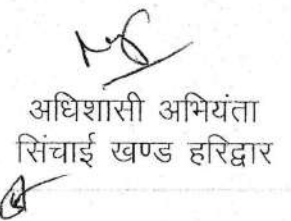 अधिशासी अभियंता
सिंचाई खण्ड हरिद्वार